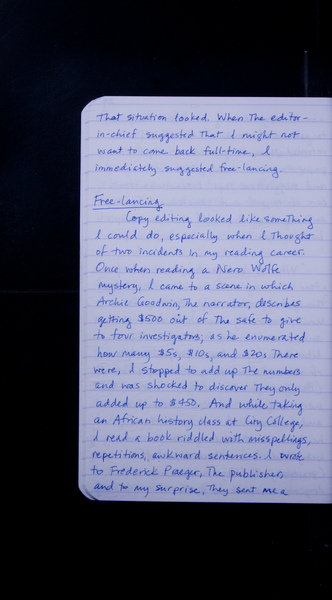 That situation looked. When the editor-
in-chief suggested that I might not
want to come back full-time, I
immediately suggested free-lancing.
Free-lancing
Copy editing looked like something
I could do, especially when I thought
of two incidents in my reading career.
Once when reading a Nero Wolfe
mystery, I came to a scene in which
Archie Goodwin, the narrator, describes
getting $500 out of the safe to give
to four investigators; as he enumerated
how many $5s, $10s, and $20s there
were, I stopped to add up the numbers
and was shocked to discover they only
added up to $450. And while taking
an African history class at City College,
I read a book riddled with misspellings,
repetitions, awkward sentences. I wrote
to Frederick Praeger, the publisher,
and to my surprise, they sent me a